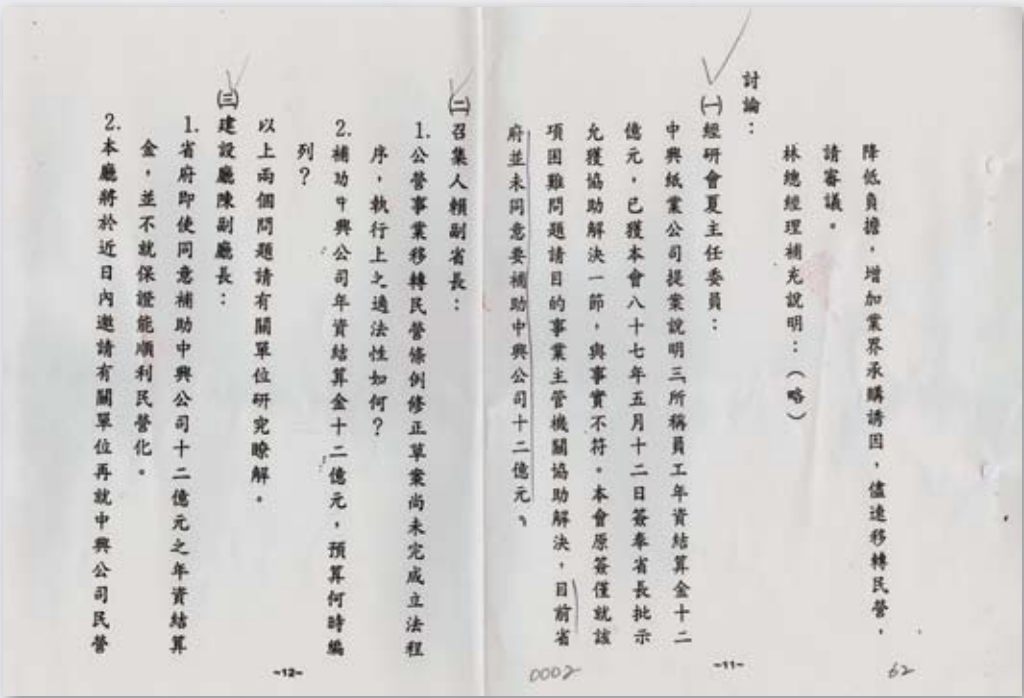 降低負擔，增加業界承購誘因，儘速移轉民營，
請審議。
林總經理補充說明：（略）
討論：
㈠經研會夏主任委員：
中興紙業公司提案說明三所稱員工年資結算金十二
億元，已獲本會八十七年五月十二日簽奉省長批示
允獲協助解決一節，與事實不符。本會原簽僅就該
項困難問題請目的事業主管機關協助解決，目前省
府並未同意要補助中興公司十二億元。
~11~
62
0002
㈡召集人賴副省長：
1.公營事業移轉民營條例修正草案尚未完成立法程
序，執行上之適法性如何？
2.補助中興公司年資結算金十二億元，預算何時編
列？
以上兩個問題請有關單位研究瞭解。
㈢建設廳陳副廳長：
1.省府即使同意補助中興公司十二億元之年資結算
金，並不就保證能順利民營化。
2.本廳將於近日內邀請有關單位再就中興公司民營
~12~